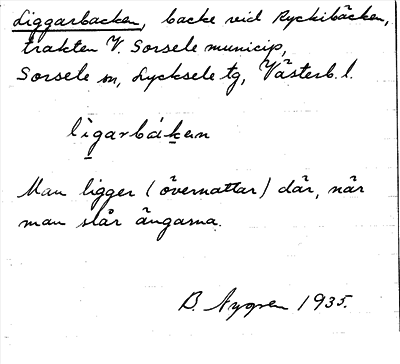 Liggarbacken, backe vid Ryckibäcken,
trakten V. Sorsele municip,
Sorsele sn, Lycksele tg, Västerb. l.
lìgarbáken
Man ligger (övernattar) där, när
man slår ängarna.
B. Nygren 1935.